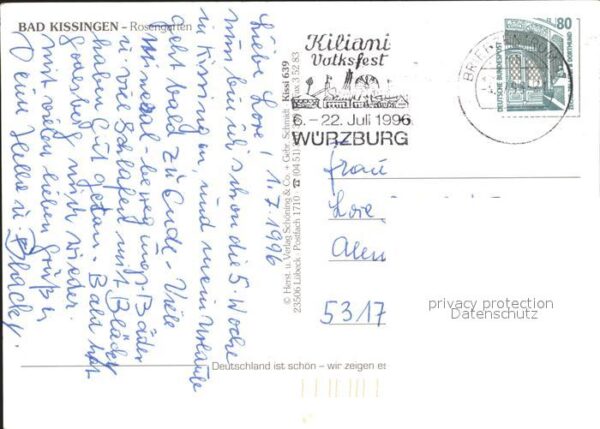 BAD KISSINGEN – Rosengarten
1.7.1996
Liebe Lore!
Nun bin ich schon die 5. Woche
in Kissingen, und mein Urlaub
geht bald zu Ende. Viele
Mineral-bewegungs-Bäder
u. viel Schlafen mit Blacky
haben Gut getan. Bald hat
Coesburg mich wieder.
Mit vielen lieben Grüßen
Deine Hella u. Blacky.
© Herst. u. Verlag Schöning & Co. + Gebr. Schmidt Kissi 639
23506 Lübeck · Postfach 1710 · ☎ (04 51) Fax 3 52 83
Kiliani
Volksfest
6.–22. Juli 1996
WÜRZBURG
BRIEFZENTRUM
80
DEUTSCHE BUNDESPOST
DORTMUND
Frau
Lore
Alten
5317
privacy protection
Datenschutz
Deutschland ist schön – wir zeigen es